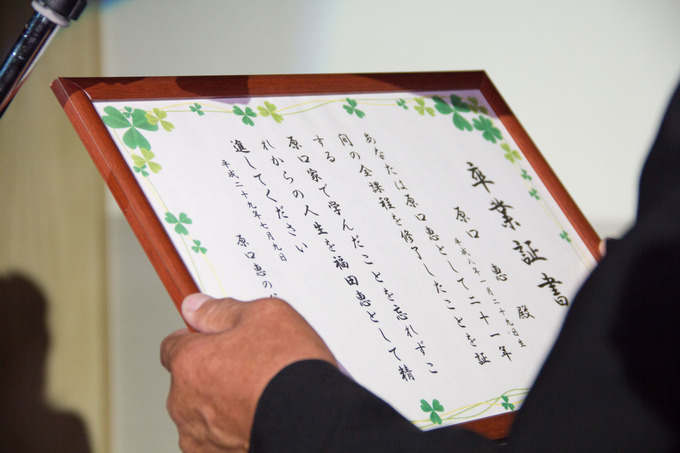 卒業証書
原口　恵　殿
平成八年一月二十九日生
あなたは原口恵として二十一年
間の全課程を修了したことを証
する
原口家で学んだことを忘れずこ
れからの人生を福田恵として精
進してください
平成二十九年七月九日
原口恵の